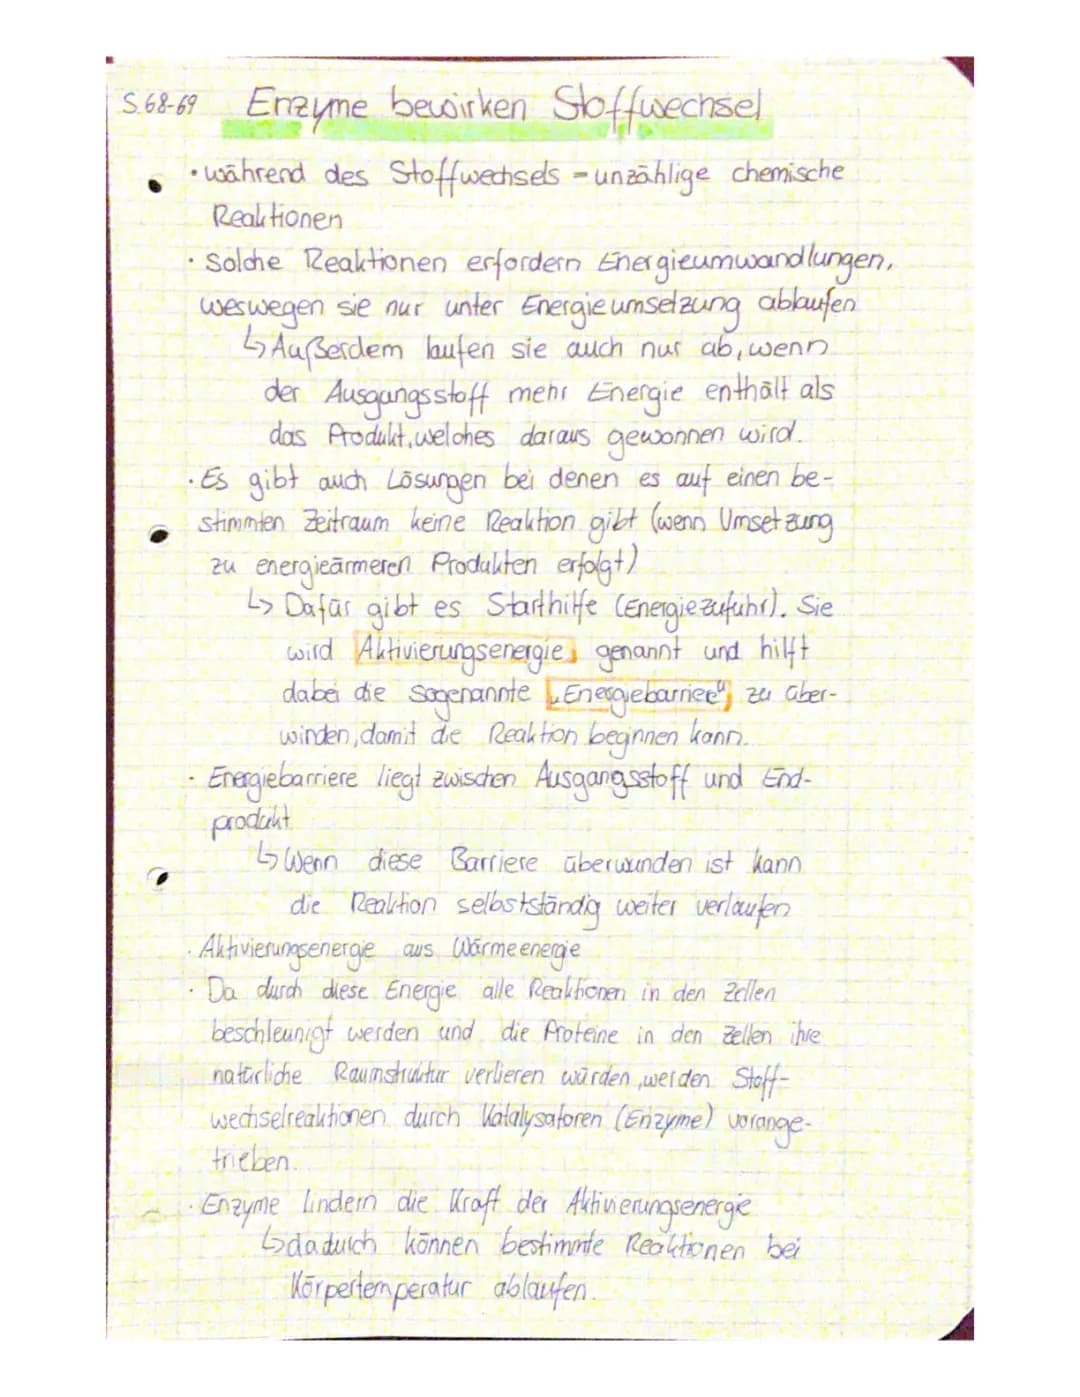 S.68-69 Enzyme bewirken Stoffwechsel
• während des Stoffwechsels - unzählige chemische
Reaktionen
• Solche Reaktionen erfordern Energieumwandlungen,
weswegen sie nur unter Energieumsetzung ablaufen
↳ Außerdem laufen sie auch nur ab, wenn
der Ausgangsstoff mehr Energie enthält als
das Produkt, welches daraus gewonnen wird.
• Es gibt auch Lösungen bei denen es auf einen be-
stimmten Zeitraum keine Reaktion gibt (wenn Umsetzung
zu energieärmeren Produkten erfolgt)
↳ Dafür gibt es Starthilfe (Energiezufuhr). Sie
wird Aktivierungsenergie genannt und hilft
dabei die sogenannte „Energiebarriere" zu über-
winden, damit die Reaktion beginnen kann.
• Energiebarriere liegt zwischen Ausgangsstoff und End-
produkt
↳ Wenn diese Barriere überwunden ist kann
die Reaktion selbstständig weiter verlaufen
• Aktivierungsenergie aus Wärmeenergie
• Da durch diese Energie alle Reaktionen in den Zellen
beschleunigt werden und die Proteine in den Zellen ihre
natürliche Raumstruktur verlieren würden, werden Stoff-
wechselreaktionen durch Katalysatoren (Enzyme) vorange-
trieben.
• Enzyme lindern die Kraft der Aktivierungsenergie
↳ dadurch können bestimmte Reaktionen bei
Körpertemperatur ablaufen.